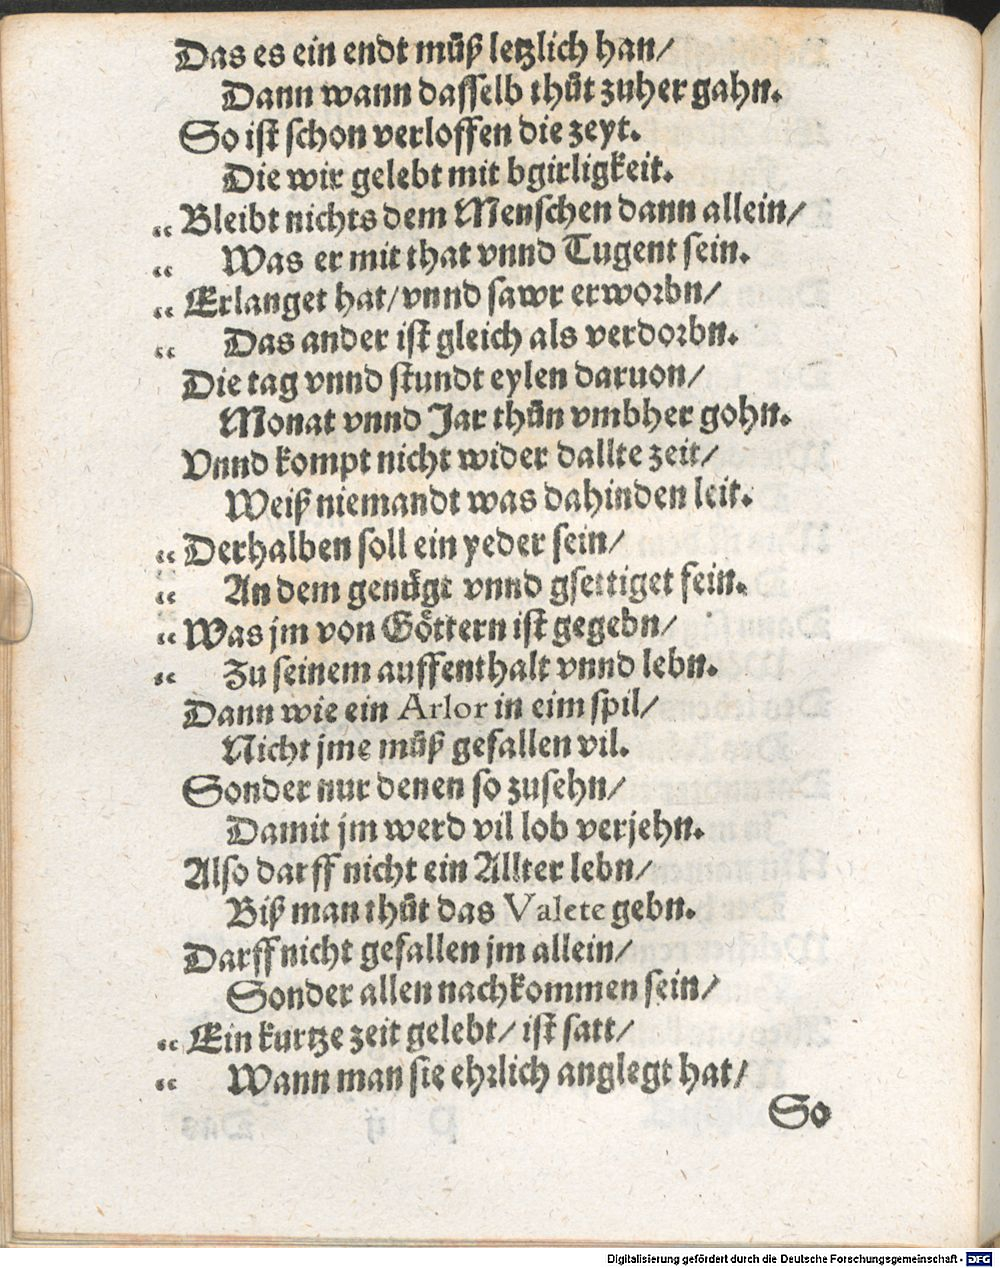 Das es ein endt müß letzlich han/
Dann wann dasselb thůt zuher gahn.
So ist schon verloffen die zeyt.
Die wir gelebt mit bgirligkeit.
„ Bleibt nichts dem Menschen dann allein/
„ Was er mit that vnnd Tugent sein.
„ Erlanget hat/ vnnd sawr erworbn/
„ Das ander ist gleich als verdorbn.
Die tag vnnd stundt eylen daruon/
Monat vnnd Jar thůn vmbher gohn.
Vnnd kompt nicht wider dallte zeit/
Weiß niemandt was dahinden leit.
„ Derhalben soll ein yeder sein/
„ An dem genůgt vnnd gsettiget fein.
„ Was jm von Göttern ist gegebn/
„ Zu seinem auffenthalt vnnd lebn.
Dann wie ein Arlor in eim spil/
Nicht jme můß gefallen vil.
Sonder nur denen so zusehn/
Damit jm werd vil lob verjehn.
Also darff nicht ein Allter lebn/
Biß man thůt das Valete gebn.
Darff nicht gefallen jm allein/
Sonder allen nachkommen sein/
„ Ein kurtze zeit gelebt/ ist satt/
„ Wann man sie ehrlich anglegt hat/
So
Digitalisierung gefördert durch die Deutsche Forschungsgemeinschaft - DFG